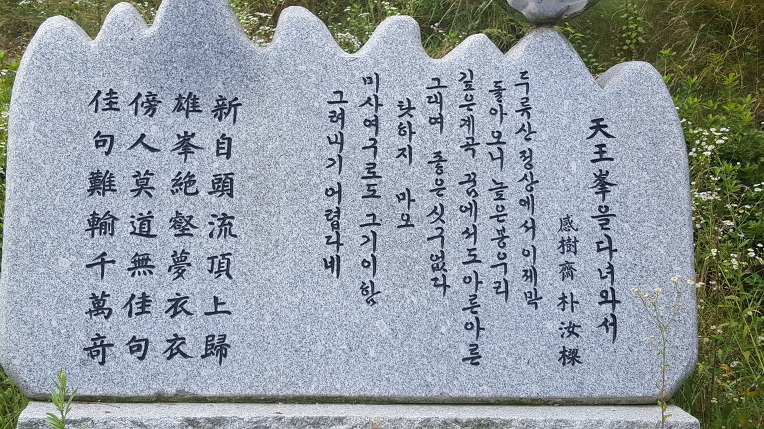 天王峯을 다녀와서
感樹齋 朴汝樑
두류산 정상에서 이제막
돌아오니 높은봉우리
깊은계곡 꿈에서도 아른아른
그대여 좋은싯구없다
탓하지 마오
미사여구로도 그기이함
그려내기 어렵다네
新自頭流頂上歸
雄峯絶壑夢衣衣
傍人莫道無佳句
佳句難輸千萬奇